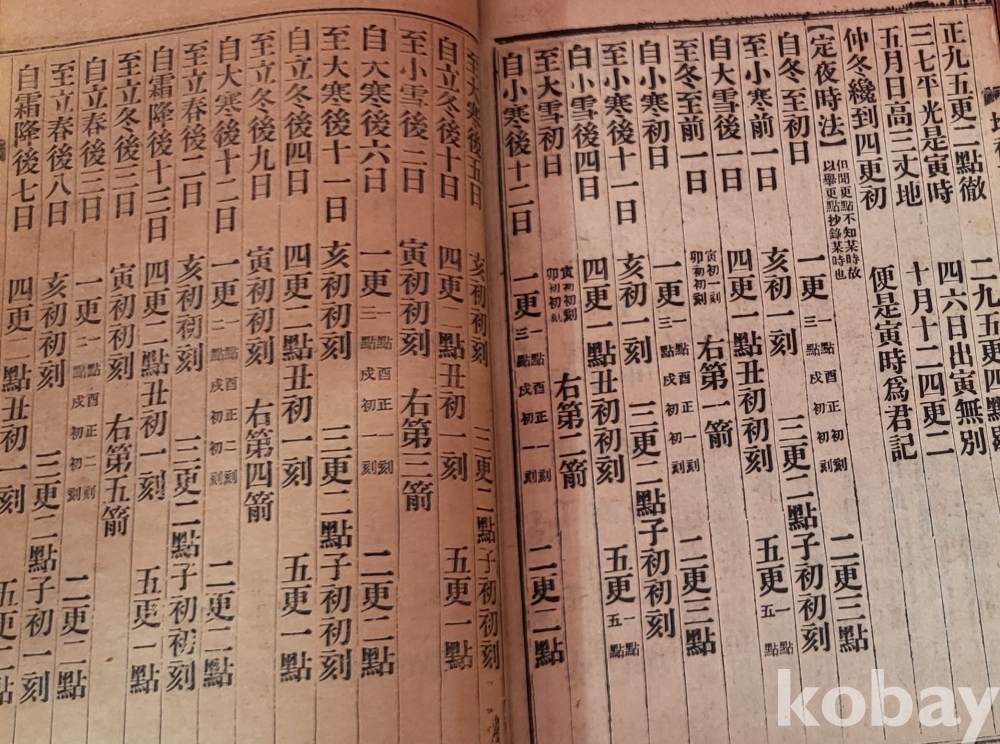 正九五更二點徹 二九五更四點
三七平光是寅時 四六日出寅無別
五月日高三丈地 十月十二四更二
仲冬纔到四更初 便是寅時爲君記
【定夜時法】但聞更點不知某時故以舉更點抄錄某時也
自冬至初日 一更一點酉初刻三點戌初初刻 二更三點
至小寒前一日 亥初一刻 三更二點子初初刻
自大雪後一日 四更一點丑初一刻 五更一點五點
至冬至前一日 寅初一刻卯初初刻 右第一箭
自小寒初日 一更一點酉正初刻三點戌初一刻 二更三點
至小寒後十一日 亥初一刻 三更二點子初初刻
自小雪後四日 四更一點丑初初刻 五更一點五點
至大雪初日 寅初初刻卯初初刻 右第二箭
自小寒後十二日 一更一點酉正一刻三點戌初初刻 二更二點
至大寒後五日 亥初初刻 三更二點子初初刻
自立冬後十日 四更二點丑初一刻 五更一點
至小雪後三日 寅初初刻 右第三箭
自大寒後六日 一更一點酉正一刻三點戌初一刻 二更二點
至大寒後十一日 亥初初刻 三更二點子初一刻
自立冬後四日 四更二點丑初一刻 五更一點
至立冬後九日 寅初初刻 右第四箭
自大寒後十二日 一更一點酉正二刻二點戌初一刻 二更二點
至立春後二日 亥初初刻 三更二點子初初刻
自霜降後十三日 四更二點丑初一刻 五更一點
至立冬後三日 寅初初刻 右第五箭
自立春後三日 一更一點酉正二刻二點戌初初刻 二更二點
至立春後八日 亥初初刻 三更二點子初一刻
自霜降後七日 四更二點丑初一刻 五更二點
kobay